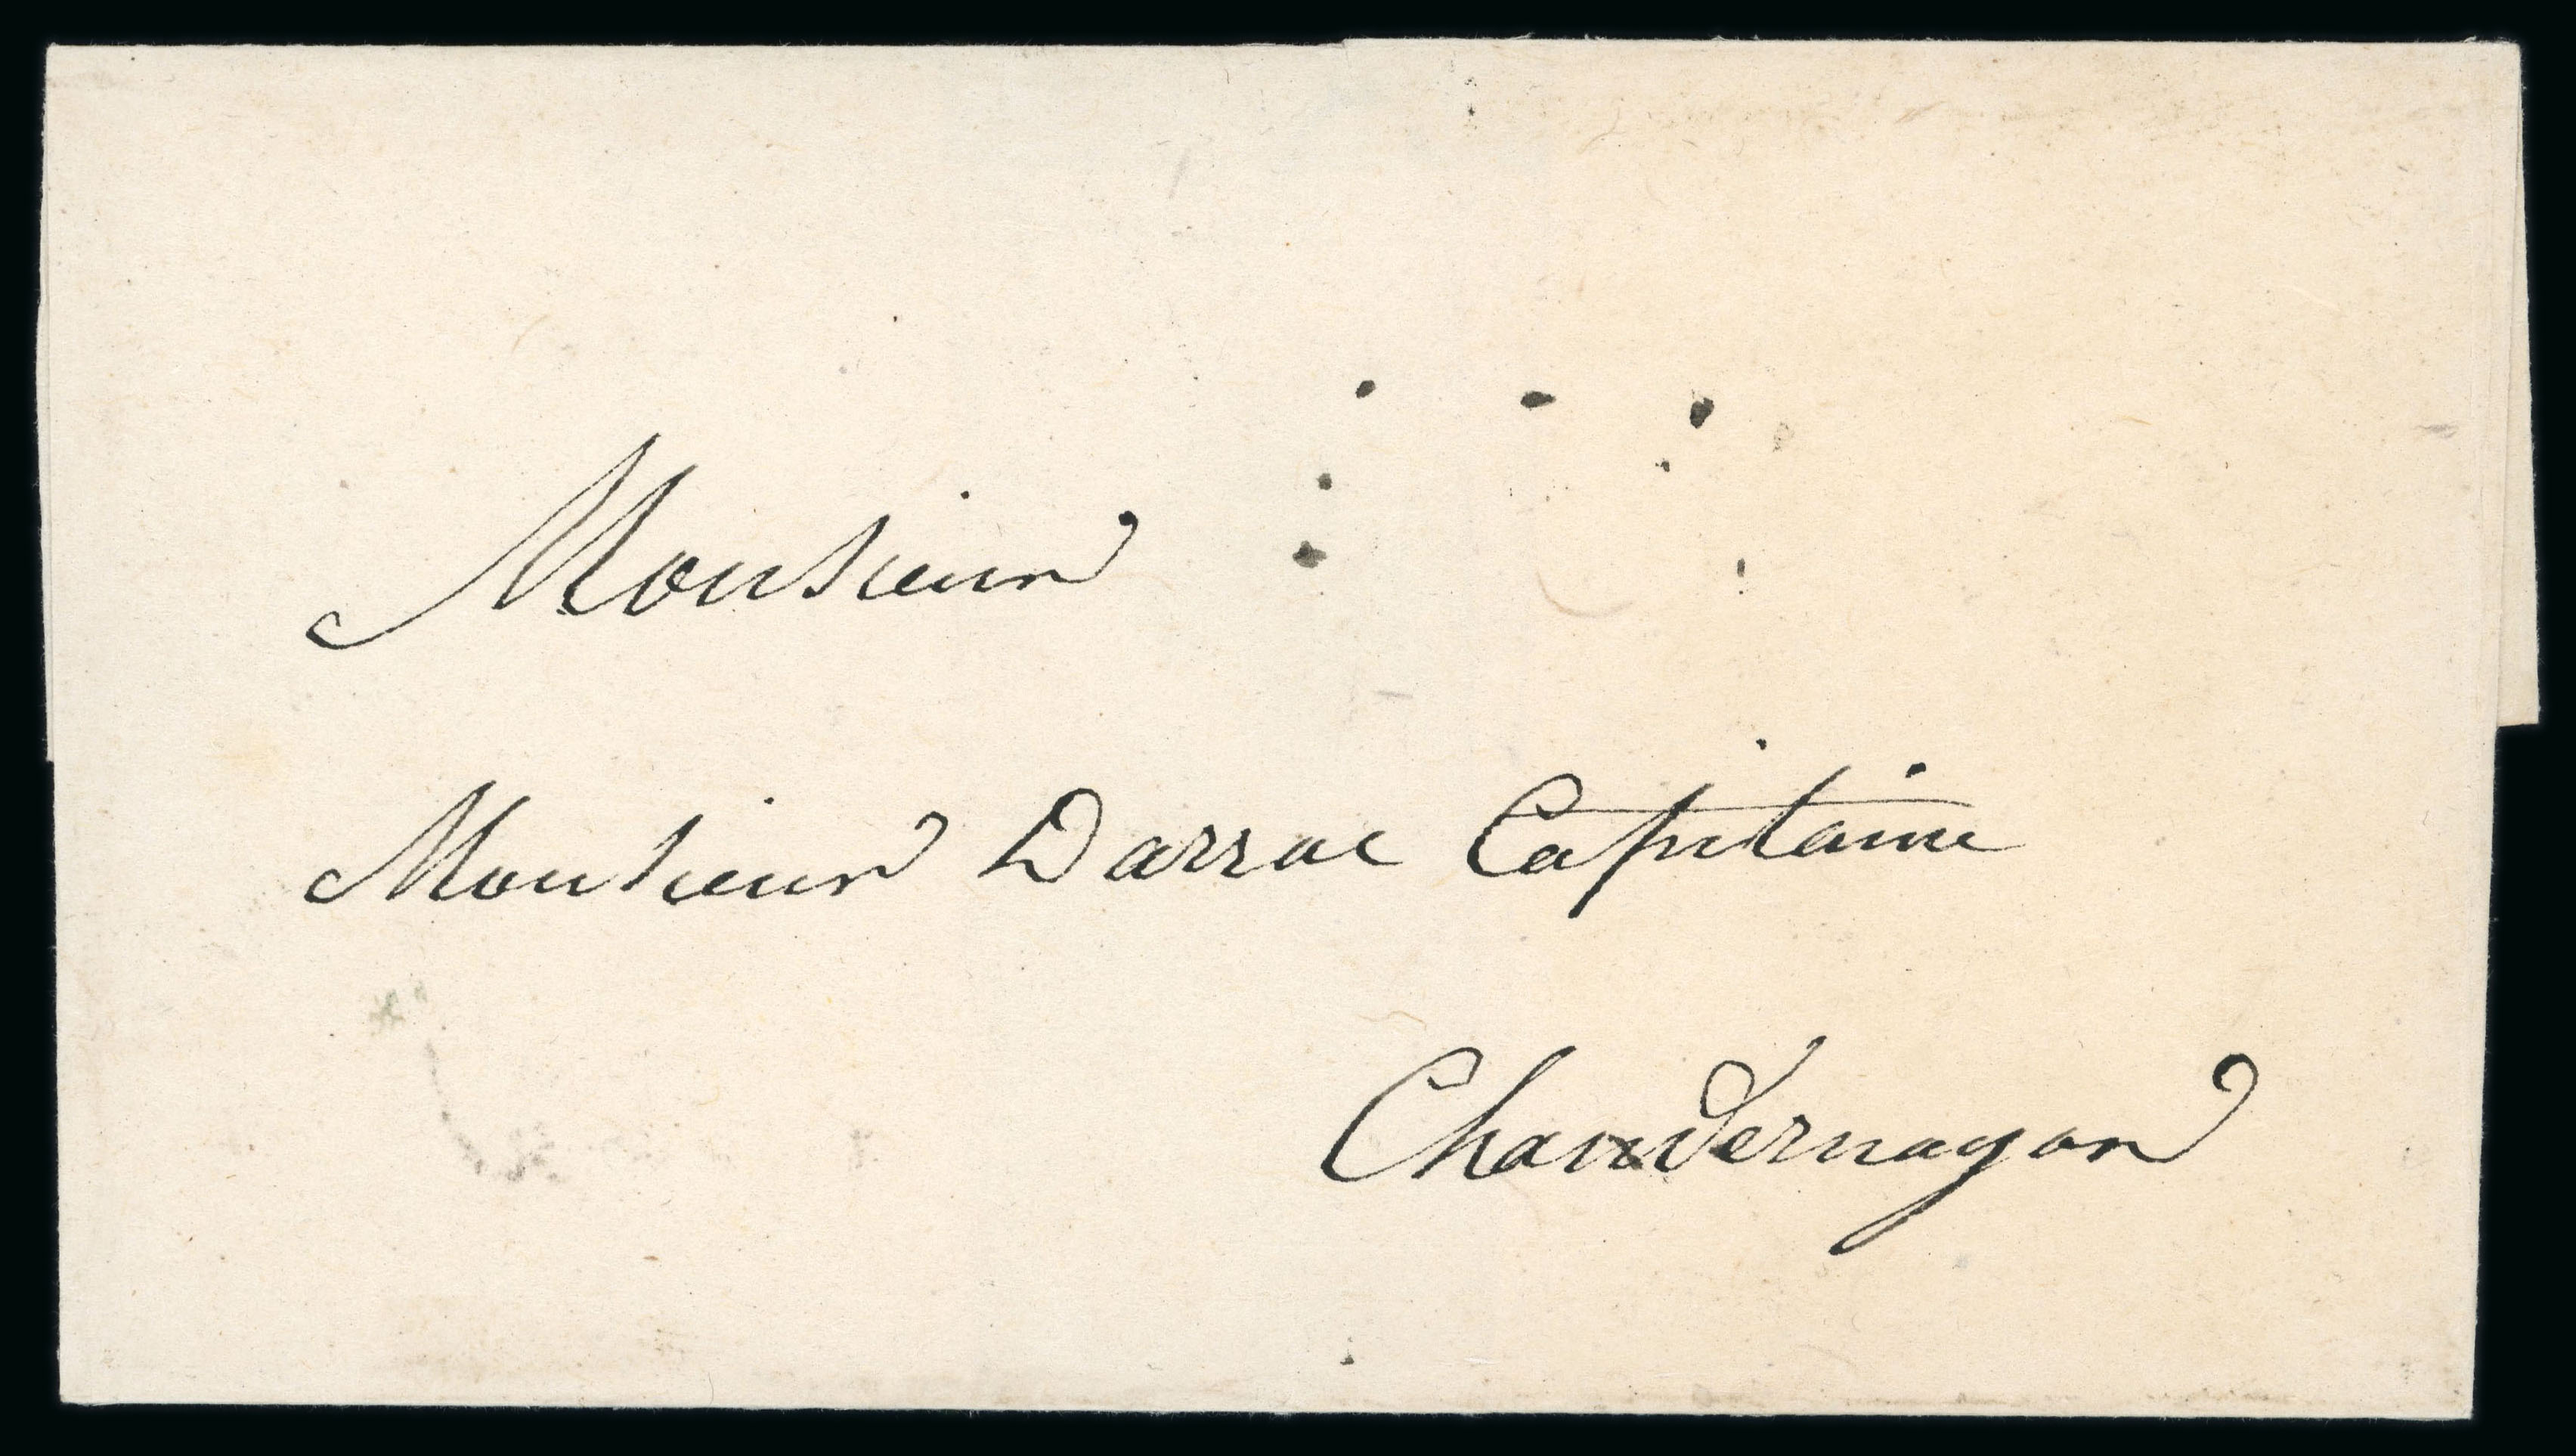 Monsieur
Monsieur Darrac Capitaine
Chandernagor